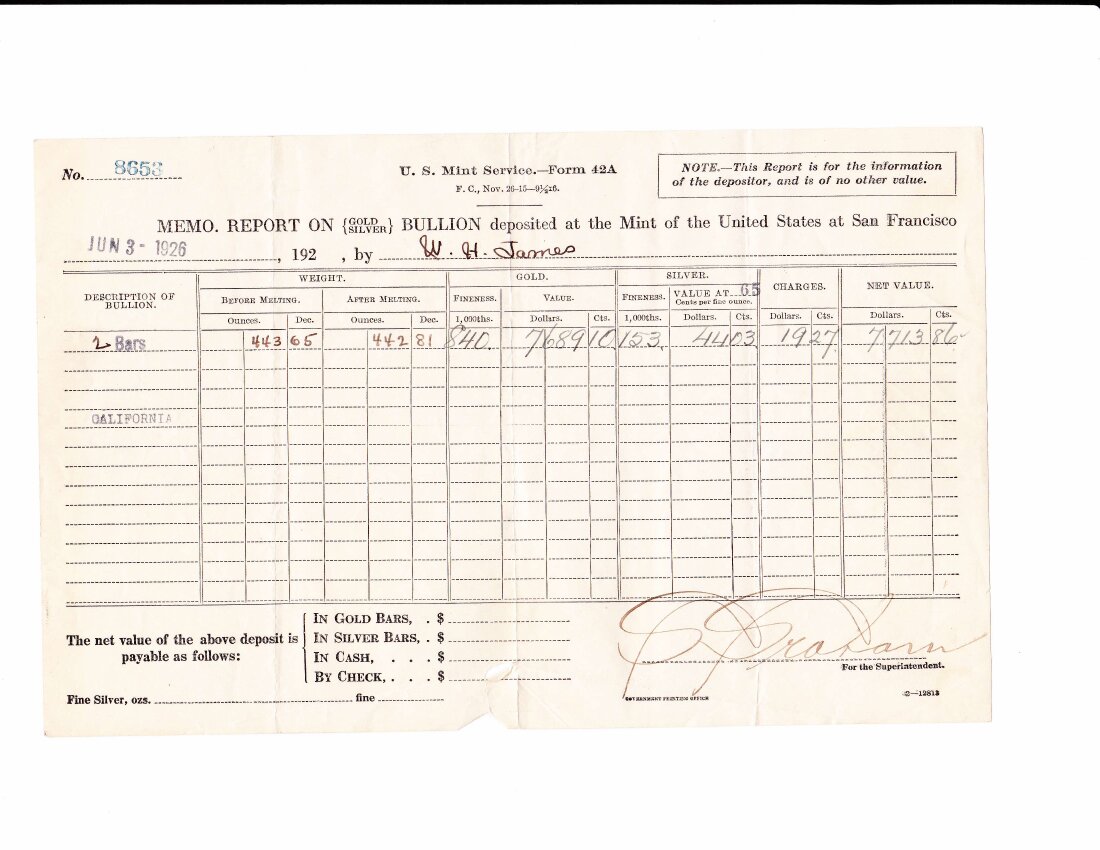 No. 8653
U. S. Mint Service.—Form 42A
F. C., Nov. 26-15—9½x16.
NOTE.—This Report is for the information
of the depositor, and is of no other value.
MEMO. REPORT ON {GOLD SILVER} BULLION deposited at the Mint of the United States at San Francisco
JUN 3 - 1926, 192 , by W. H. James
DESCRIPTION OF BULLION. WEIGHT. GOLD. SILVER. CHARGES. NET VALUE.
BEFORE MELTING. AFTER MELTING. FINENESS. VALUE. FINENESS. VALUE AT 65 Cents per fine ounce.
Ounces. Dec. Ounces. Dec. 1,000ths. Dollars. Cts. 1,000ths. Dollars. Cts. Dollars. Cts. Dollars. Cts.
2 Bars 443 65 442 81 840. 7689 10 153. 44 03 19 27 7713 86
CALIFORNIA
The net value of the above deposit is payable as follows:
IN GOLD BARS, . $
IN SILVER BARS, . $
IN CASH, . . . $
BY CHECK, . . . $
Graham
For the Superintendent.
Fine Silver, ozs. fine
GOVERNMENT PRINTING OFFICE
2—12813